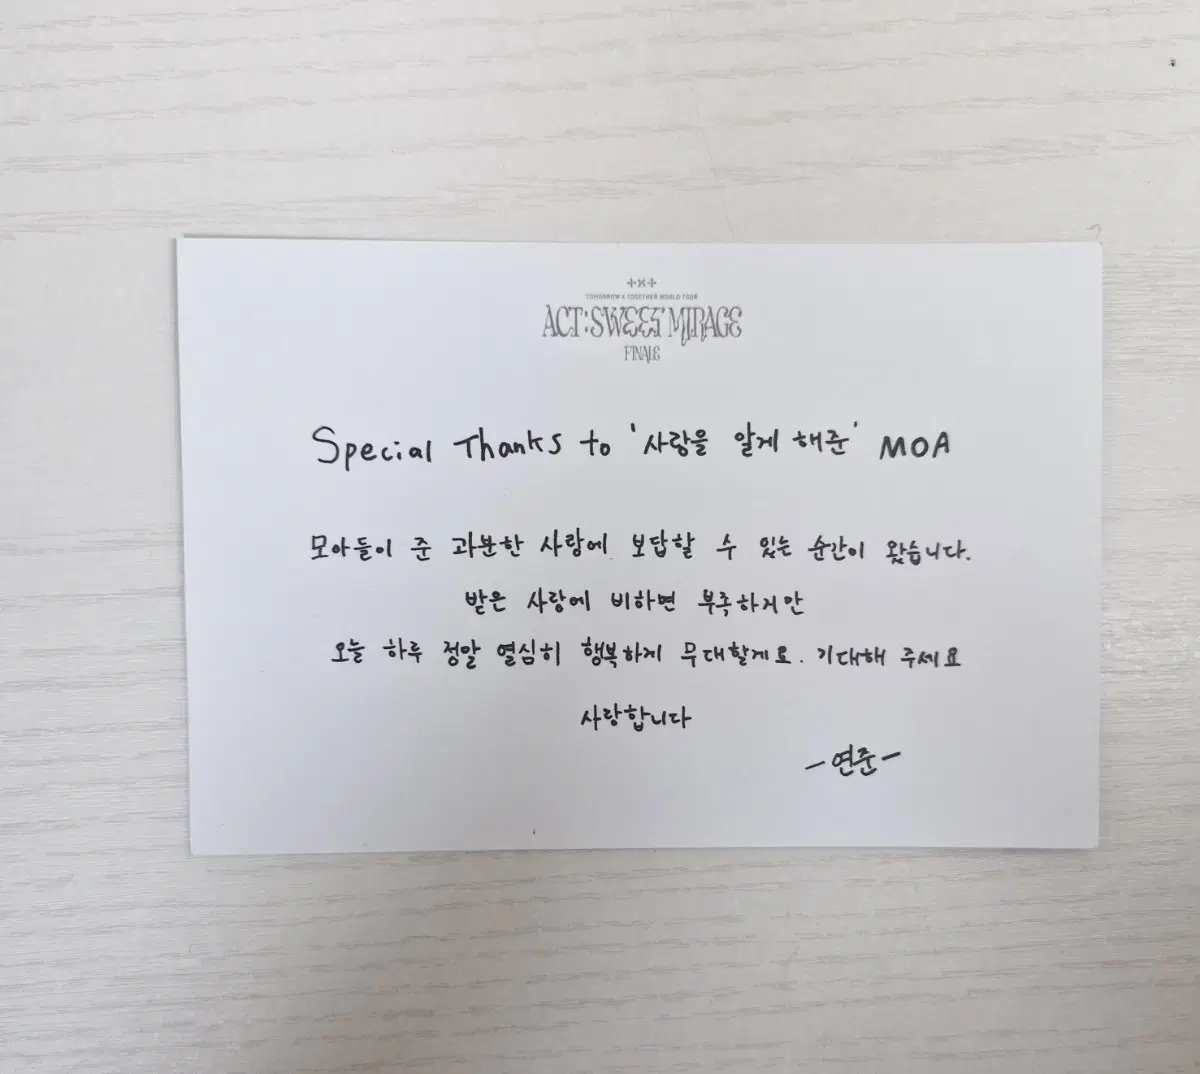 TOMORROW X TOGETHER WORLD TOUR
ACT : SWEET MIRAGE
FINALE
Special Thanks to '사랑을 알게 해준' MOA
모아들이 준 과분한 사랑에 보답할 수 있는 순간이 왔습니다.
받은 사랑에 비하면 부족하지만
오늘 하루 정말 열심히 행복하게 무대할게요. 기대해 주세요
사랑합니다
-연준-